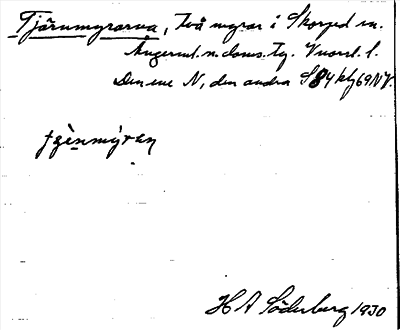 Tjärnmyrarna, Två myrar i Skorped sn.
Ångerml. n. doms. tg. Vnorrl. l.
Den ene N, den andra S 84 kbg 69 NV.
tjènmýran
H A Söderberg 1930